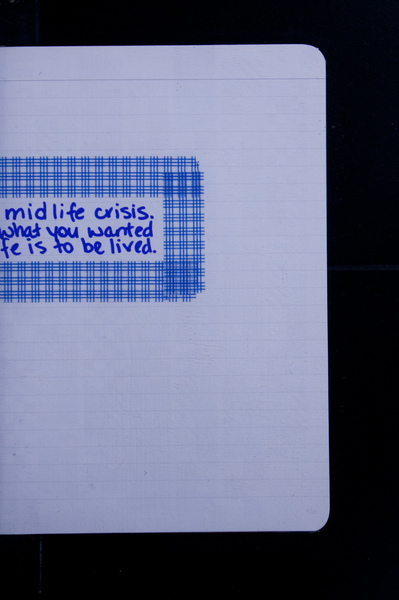 mid life crisis.
what you wanted
fe is to be lived.